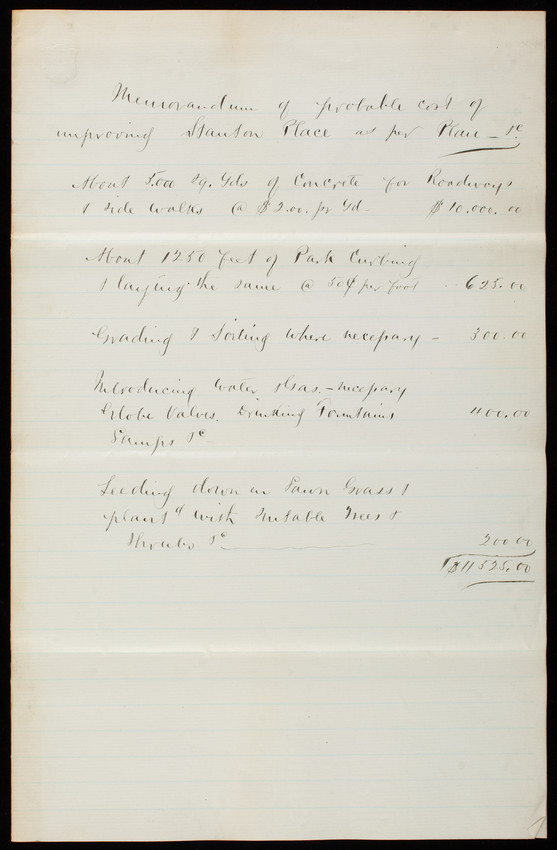 Memorandum of probable cost of
improving Stanton Place as per Plan - &c
About 5.000 Sq. Yds of Concrete for Roadways
& side walks @ $2.00. pr Yd - $10.000.00
About 1250 feet of Park Curbing
& laying the same @ 50¢ per foot - 625.00
Grading & Soiling where necessary - 300.00
Introducing Water, & Gas. - necessary
Globe Valves. Drinking Fountains 400.00
Lamps &c
Seeding down in Lawn Grass &
plantg with Suitable Trees &
Shrubs &c 200 00
$11525.00